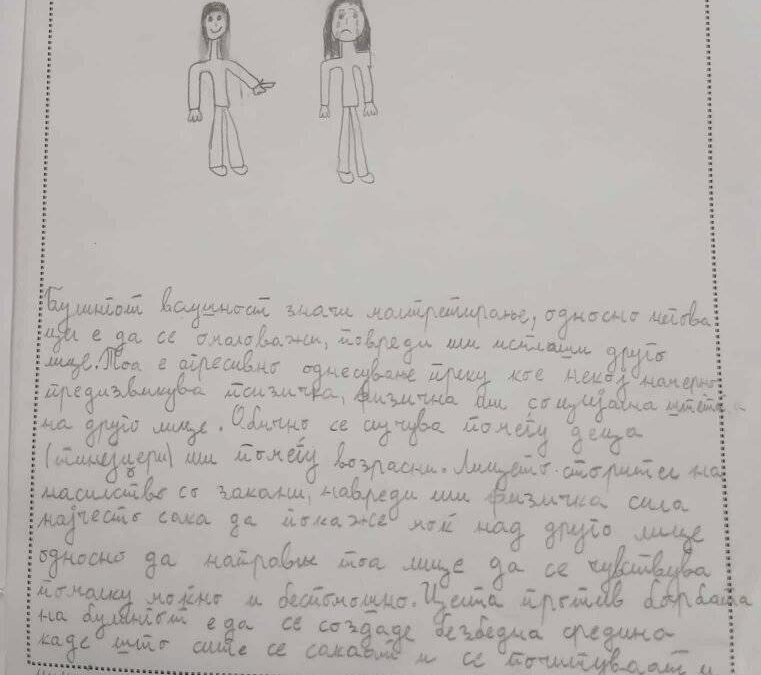 Булингот всушност значи малтретирање, односно негова
цел е да се омаловажи, повреди или исплаши друго
лице. Тоа е агресивно однесување преку кое некој намерно
предизвикува психичка, физична или социјална штета
на друго лице. Обично се случува помеѓу деца
(тинејџери) или помеѓу возрасни. Лицето сторител на
насилство со закани, навреди или физичка сила
најчесто сака да покаже моќ над друго лице
односно да направи тоа лице да се чувствува
помалку моќно и беспомошно. Целта против борбата
на булингот е да се создаде безбедна средина
каде што сите се сакаат и се почитуваат и